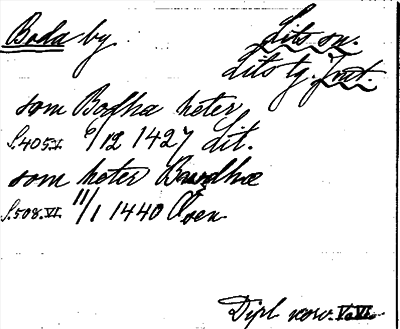 Boda by. Lits sn.
Lits tg. Jmt.
som Bodha heter
S.405.V. 9/12 1427 Lit.
som heter Bawdhæ
S.508.VI. 11/1 1440 Åsen
Dipl norv. V o VI.